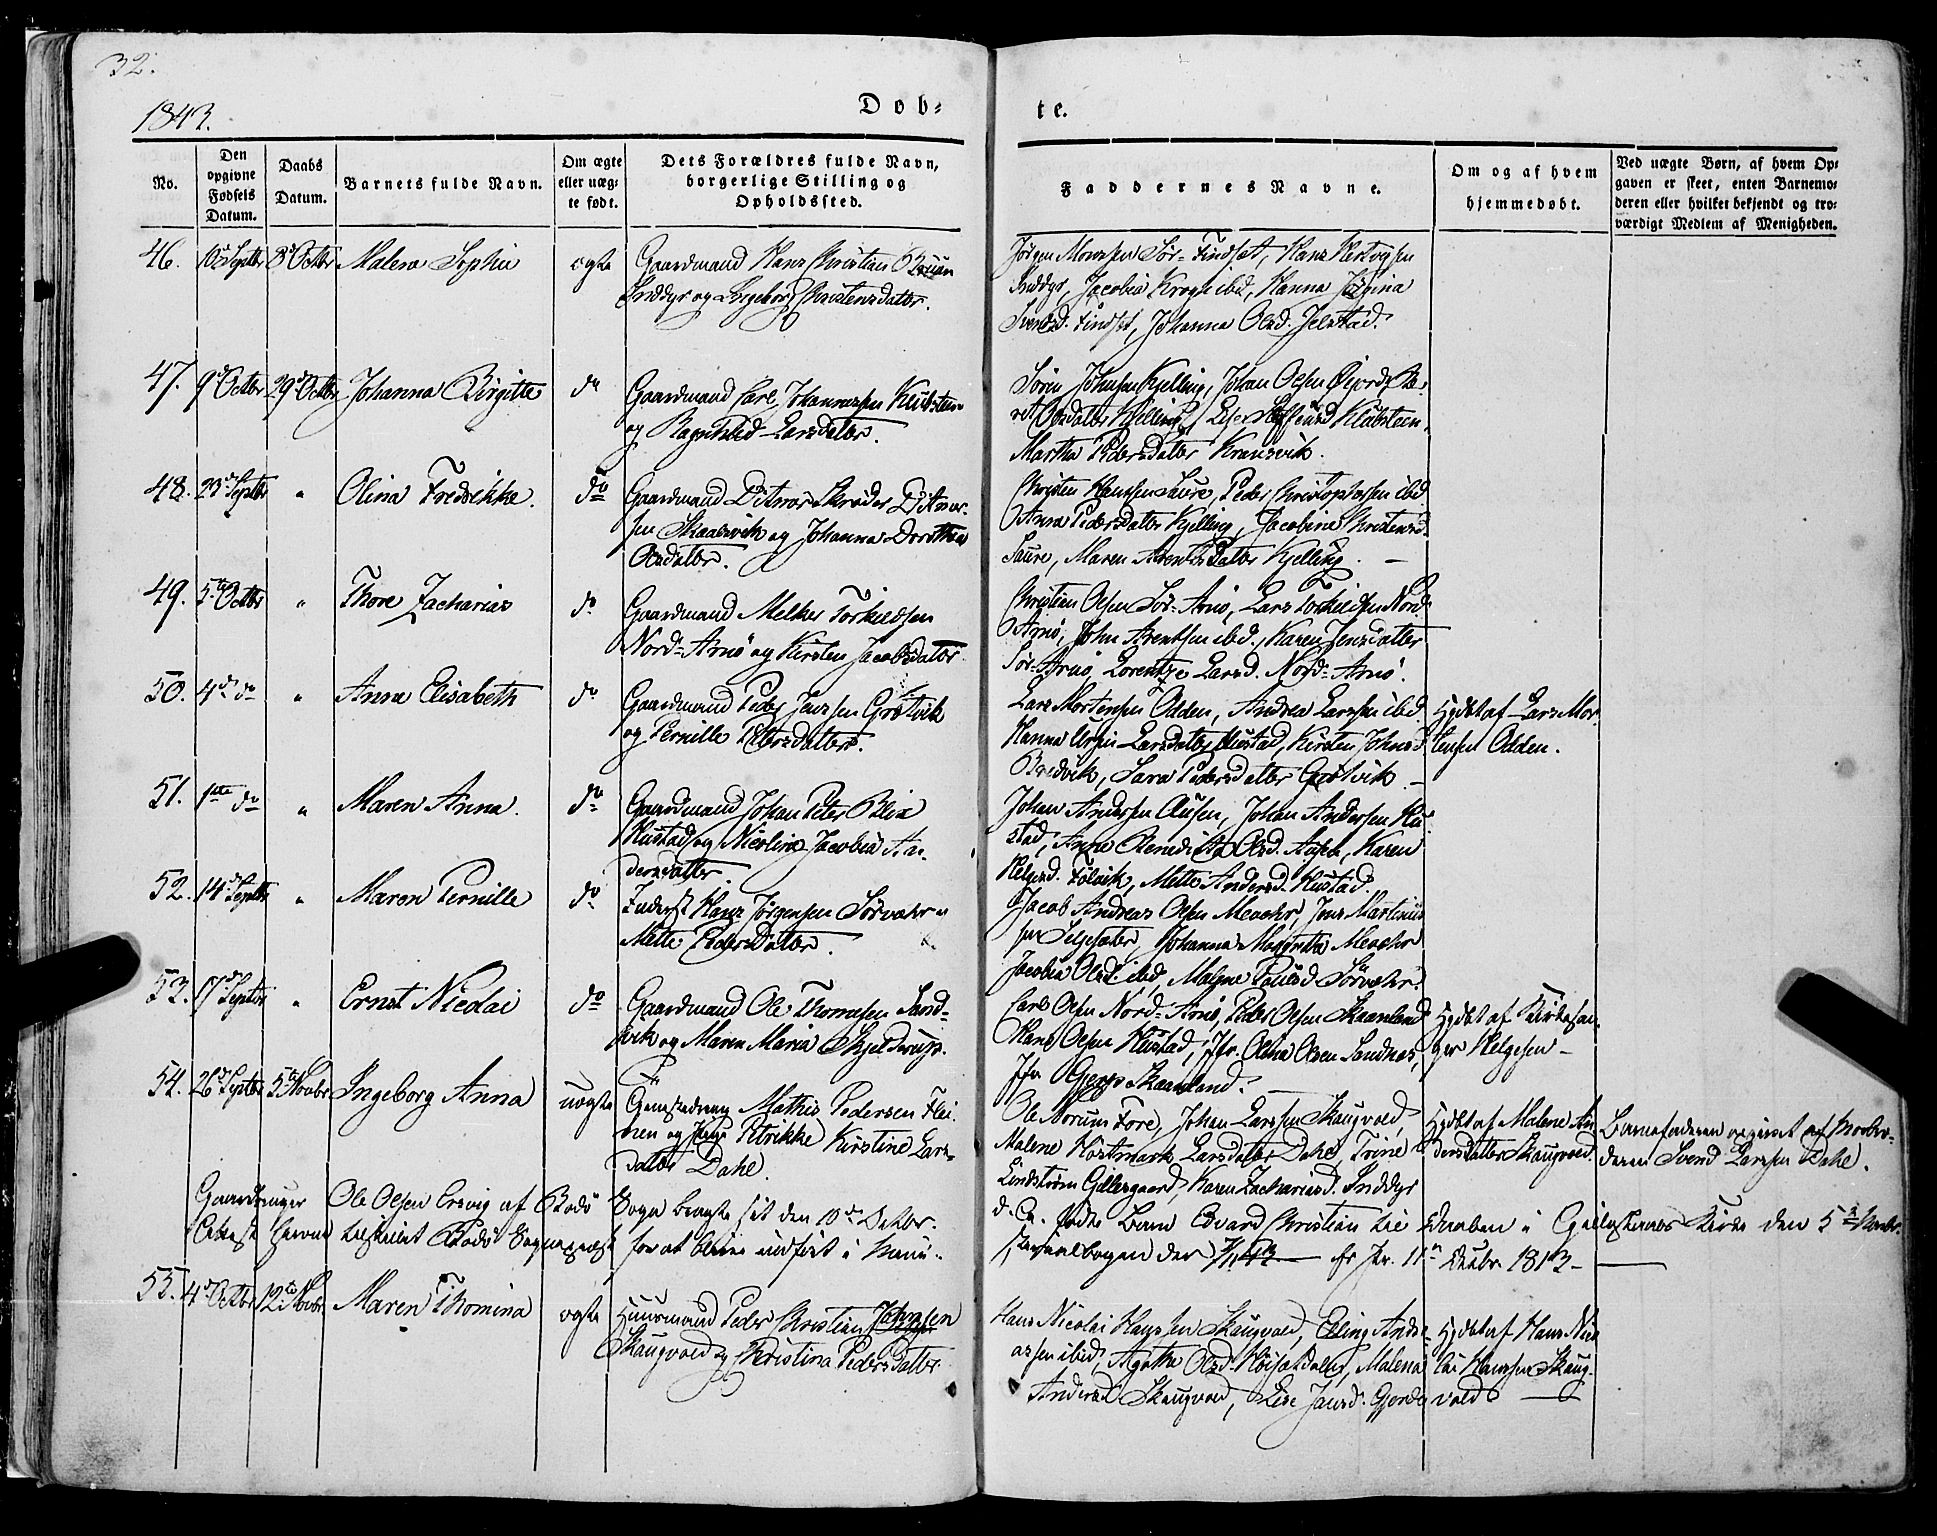 32.
1843.
Døb-
te.
No.
Den opgivne Fødsels Datum.
Daabs Datum.
Barnets fulde Navn.
Om ægte eller uæg-te født.
Dets Forældres fulde Navn, borgerlige Stilling og Opholdssted.
Faddernes Navne.
Om og af hvem hjemmedøbt.
Ved uægte Børn, af hvem Op-
gaven er skeet, enten Barnemo-
deren eller hvilket bekjendt og tro-
værdigt Medlem af Menigheden.
46. 10de Septbr 8de Octbr Malena Sophie ægte Gaardmand Hans Christian Bruun
Inddyr og Ingeborg Christensdatter.
Jørgen Monssen Sør-Findset, Hans Hertvigsen
Inddyr, Jacobia Krogh ibid, Hanna Jørgina
Svendsd. Findset, Johanna Olsd. Jelstad.
47. 9de Octbr 29de Octbr Johanna Birgitte do Gaardmand Carl Johannessen Klubsteen
og Ragnhild Larsdatter.
Søren Johnsen Kjelling, Johan Olsen Øjord, Be-
rit Olsdatter Kjelling, Klubsteen,
Martha Pedersdatter Kransvik.
48. 23de Septbr " Olina Fredrikke. do Gaardmand Ditmar Skrøder Ditmar-
sen Skaalsvik og Johanna Dorothea
Olsdatter.
Christen Hansen Saure, Peder Christophersen ibid
Anna Pedersdatter Kjelling, Jacobine Christensd.
Saure, Maren Arentsdatter Kjelling. —
49. 5te Octbr " Thore Zacharias do Gaardmand Melker Torkildsen
Nord-Arnø og Kirsten Jacobsdatter.
Christian Olsen Sør-Arnø, Lars Torkildsen Nord-
Arnø, John Arentsen ibid, Karen Jensdatter
Sør-Arnø, Lorentze Larsd. Nord-Arnø.
50. 4de do " Anna Elisabeth do Gaardmand Peder Jenssen Grøtvik
og Pernille Petersdatter.
Lars Mortensen Odden, Andrea Larssen ibid.
Hanna Larsdatter Hustad, Kirsten Johnsd.
Bredvik, Sara Pedersdatter Grøtvik —
Hjdbt af Lars Mor-
tensen Odden.
51. 1ste do " Maren Anna. do Gaardmand Johan Peter Blix
Hustad og Nicolina Jacobia An-
dersdatter.
Johan Andersen Ausen, Johan Andersen Hu-
stad, Anna Benedicta Olsd. Ausen, Karen
Helgesd. Følvik, Mette Andersd. Hustad.
52. 14de Septbr " Maren Pernille do Inderst Hans Jørgensen Sørvær og
Mette Pedersdatter.
Jacob Andreas Olsen Mevær, Jens Martinus-
sen Selsæter, Johanna Margreta Mevær
Jacobia Olsd. ibid, Malene Poulsd Sørvær.
53. 17de Septbr " Ernst Nicolai do Gaardmand Ole Thomesen Sand-
vik og Maren Maria Skjelderup.
Carl Olsen Nord-Arnø, Peder Olsen Skaanland
Hans Olsen Hustad, Jfr. Olina Olsen Sandnæs,
Jfr. Skaanland.
Hjdbt af Kirkesan-
ger Helgesen —
54. 26de Septbr 5te Novbr Ingeborg Anna uægte Mathis Pedersen Flei-
nen og Pige Petrikke Kirstine Lars-
datter Dahl.
Ole Norum Fore, Johan Larssen Skaugvold,
Malene Hostmark Larsdatter Dahl, Trine
Lindstrøm Gillesgaard, Karen Zachariasd. Inddyr
Hjdbt af Malene An-
dersdatter Skaugvold.
Barnefaderen opgivet af Morbro-
deren Svend Larssen Dahl.
Gaardbruger Ole Olsen Ersvig af Bodø Sogn bragte sit den 10de Octbr.
d. A. fødte Barn Edvard Christian til Daaben i Gildeskaals Kirke den 5te Novbr.
for at blive indført i Mini-
sterialbogen der 11te Decbr. 1843 —
55. 4de Octbr 12te Novbr Maren Thomina ægte Huusmand Peder Christian Johnsen
Skaugvold og Christina Pedersdatter
Hans Nicolai Hanssen Skaugvold, Elling Andre-
assen ibid, Agathe Olsd. Høisetdalen, Malena
Andersd Skaugvold, Lise Jansd. Gjerde
Hjdbt af Hans Nico-
lai Hanssen Skaug-
vold —